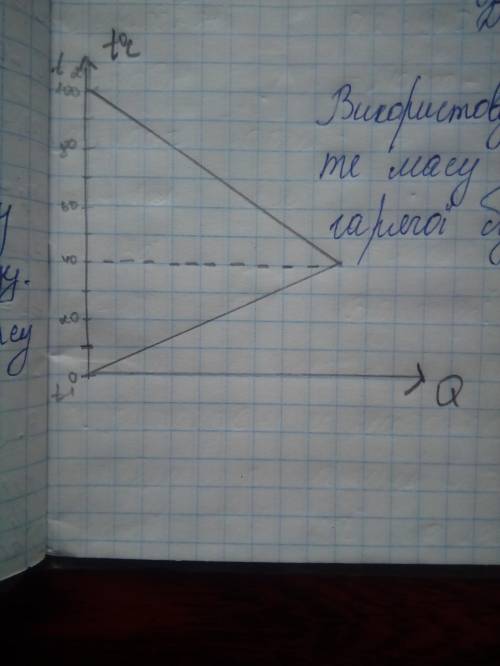 t°C
t 2
100
80
60
40
20
0
t1
Q
Використову
те масу
гарячої б
у
ку.
су